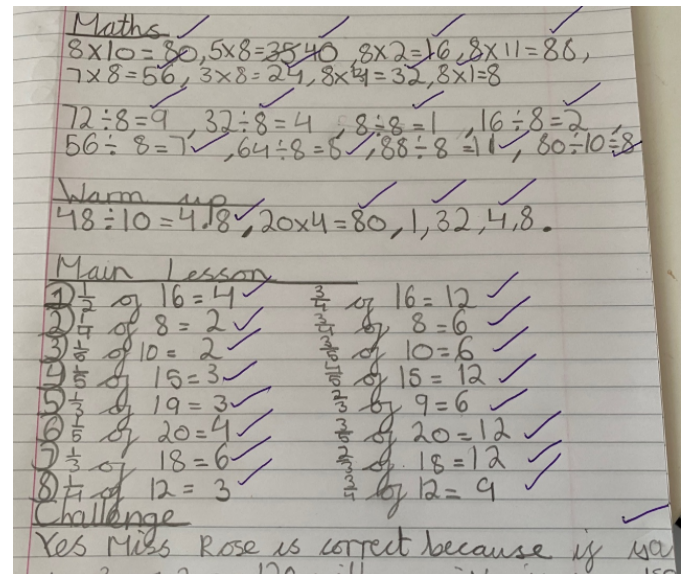 Maths
8×10=80, 5×8=3540, 8×2=16, 8×11=88,
7×8=56, 3×8=24, 8×4=32, 8×1=8
72÷8=9, 32÷8=4, 8÷8=1, 16÷8=2,
56÷8=7, 64÷8=8, 88÷8=11, 80÷10=8
Warm up
48÷10=4.8, 20×4=80, 1, 32, 4, 8.
Main Lesson
1) 1/2 of 16=4 3/4 of 16=12
2) 1/4 of 8=2 3/4 of 8=6
3) 1/5 of 10=2 3/5 of 10=6
4) 1/5 of 15=3 of 15=12
5) 1/3 of 19=3 2/3 of 9=6
6) 1/5 of 20=4 3/5 of 20=12
7) 1/3 of 18=6 2/3 of 18=12
8) 1/4 of 12=3 3/4 of 12=9
Challenge
Yes Miss Rose is correct because if